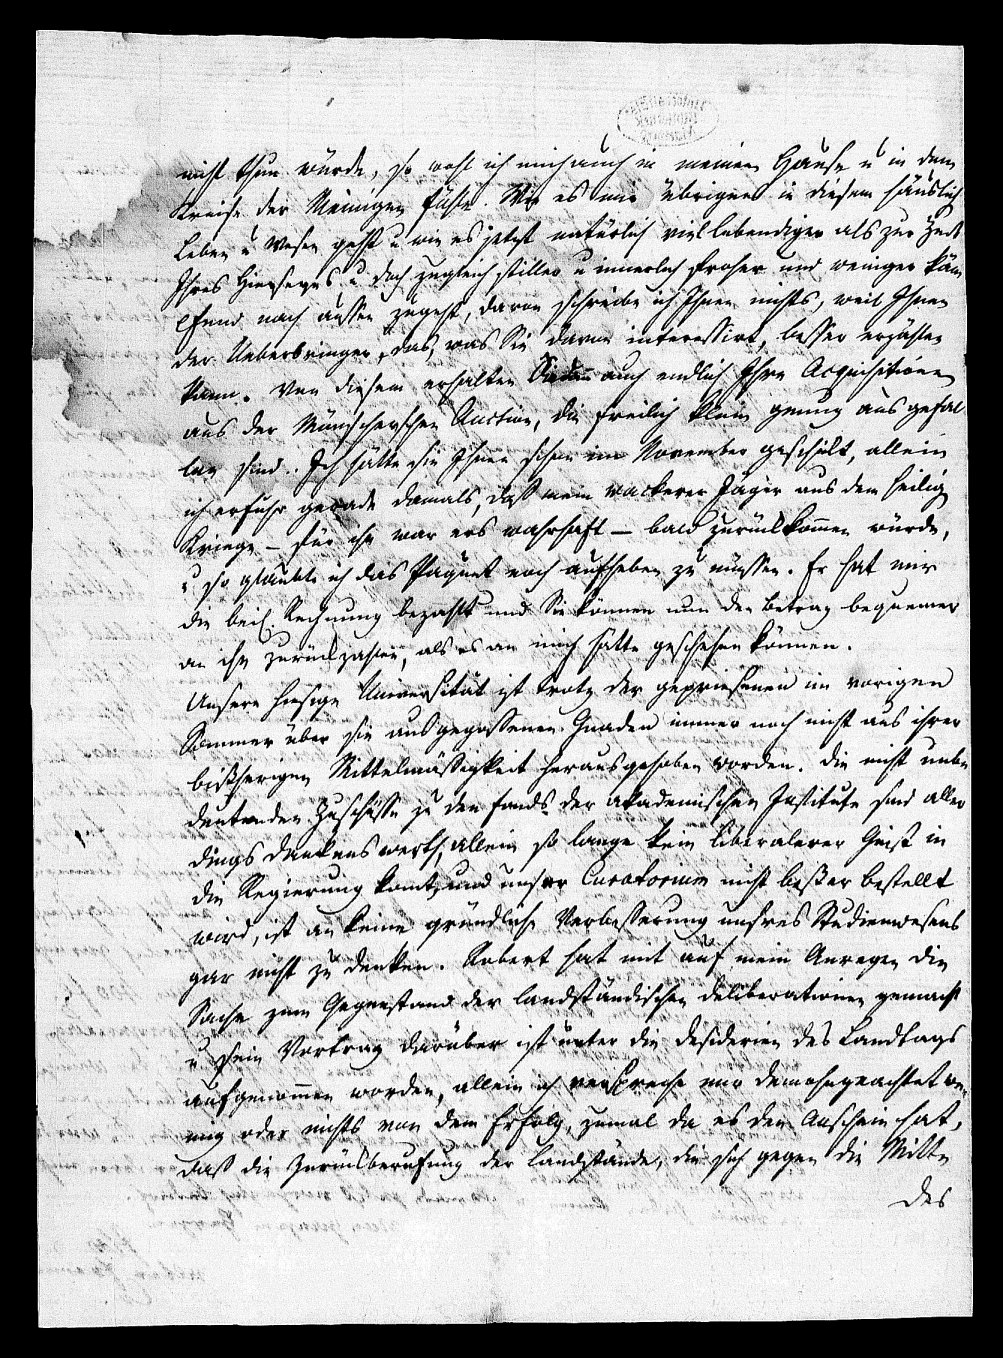 nicht thun würde, so wohl ich mich auch in meinem Hause u in dem
Kreise der Meinigen fühle. Wie es mir übrigens in diesem häuslich
Leben u Wesen geht u wie es jetzt natürlich viel lebendiger als zur Zeit
Ihres Hierseyns u doch zugleich stiller u innerlich froher und weniger käm
pfend nach aussen zugeht, davon schreibe ich Ihnen nichts, weil Ihnen
der Ueberbringer, das, was Sie davon interessirt, besser erzählen
kann. Von diesem erhalten Sie auch endlich Ihre Acquisitionen
aus der Münscherschen Auction, die freilich klein genug ausgefal
len sind. Ich hätte sie Ihnen schon im November geschickt, allein
ich erfuhr gerade damals, daß mein wackerer Jäger aus dem heilig
Kriege – für ihn war ers wahrhaft – bald zurückkomen würde,
u so glaubte ich das Paquet noch aufheben zu müssen. Er hat mir
die beil. Rechnung bezahlt und Sie können nun den Betrag bequemer
an ihn zurückzahlen, als es an mich hätte geschehen können.
Unsere hiesige Universität ist trotz der gepriesenen im vorigen
Sommer über sie ausgegossenen Gnaden immer noch nicht aus ihrer
bißherigen Mittelmäßigkeit herausgehoben worden. Die nicht unbe
deutenden Zuschüsse zu den Fonds der akademischen Institute sind aller
dings dankenswerth, allein so lange kein liberalerer Geist in
die Regierung komt, und unser Curatorium nicht beßer bestellt
wird, ist an keine gründliche Verbesserung unsres Studienwesens
gar nicht zu denken. Robert hat mit auf mein Anregen die
Sache zum Gegenstand der landständischen Deliberationen gemacht
u sein Vortrag darüber ist unter die Desiderien des Landtags
aufgenommen worden, allein ich verspreche mir demohngeachtet we
nig oder nichts von dem Erfolg, zumal da es den Anschein hat,
daß die Zurückberufung der Landstände, die sich gegen die Mitte
des